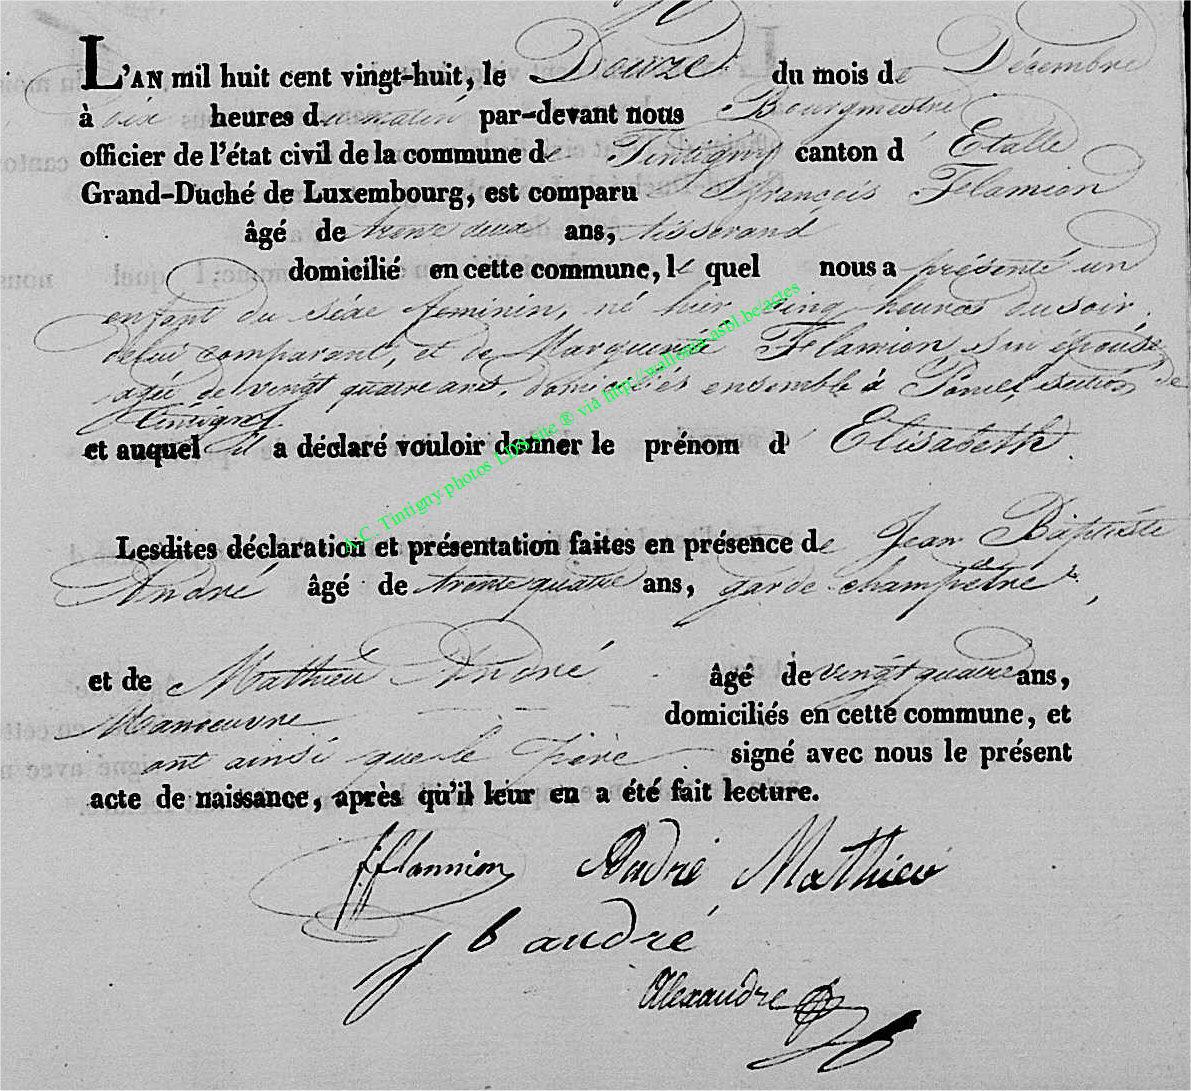 L'AN mil huit cent vingt-huit, le Douze du mois de Décembre
à dix heures du matin par-devant nous Bourgmestre
officier de l'état civil de la commune de Tintigny canton d'Etalle
Grand-Duché de Luxembourg, est comparu François Flamion
âgé de trente deux ans, tisserand
domicilié en cette commune, le quel nous a présenté un
enfant du séxe feminin, né hier cinq heures du soir,
de lui comparant, et de Marguerite Flamion son epouse,
agée de vingt quatre ans, domiciliés ensemble à Poncel, section de
Tintigny
et auquel il a déclaré vouloir donner le prénom d' Elisabeth.
Lesdites déclaration et présentation faites en présence de Jean Baptiste
André âgé de trente quatre ans, garde champêtre,
et de Mathieu André âgé de vingt quatre ans,
Manoeuvre domiciliés en cette commune, et
ont ainsi que le père signé avec nous le présent
acte de naissance, après qu'il leur en a été fait lecture.
A.C. Tintigny photos LDS site ® via http://wallonia-asbl.be/actes
fflamion André Mathieu
J b andré
Alexandre